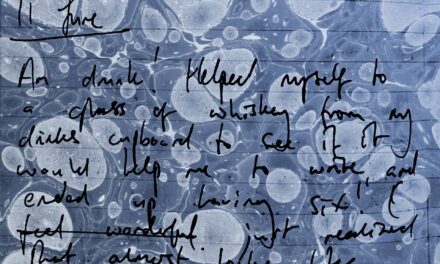 11 June
Am drunk! Helped myself to
a glass of whiskey from my
drinks cupboard to see if it
would help me to write and
ended up having six!! (I
feel wonderful just realized
that almost